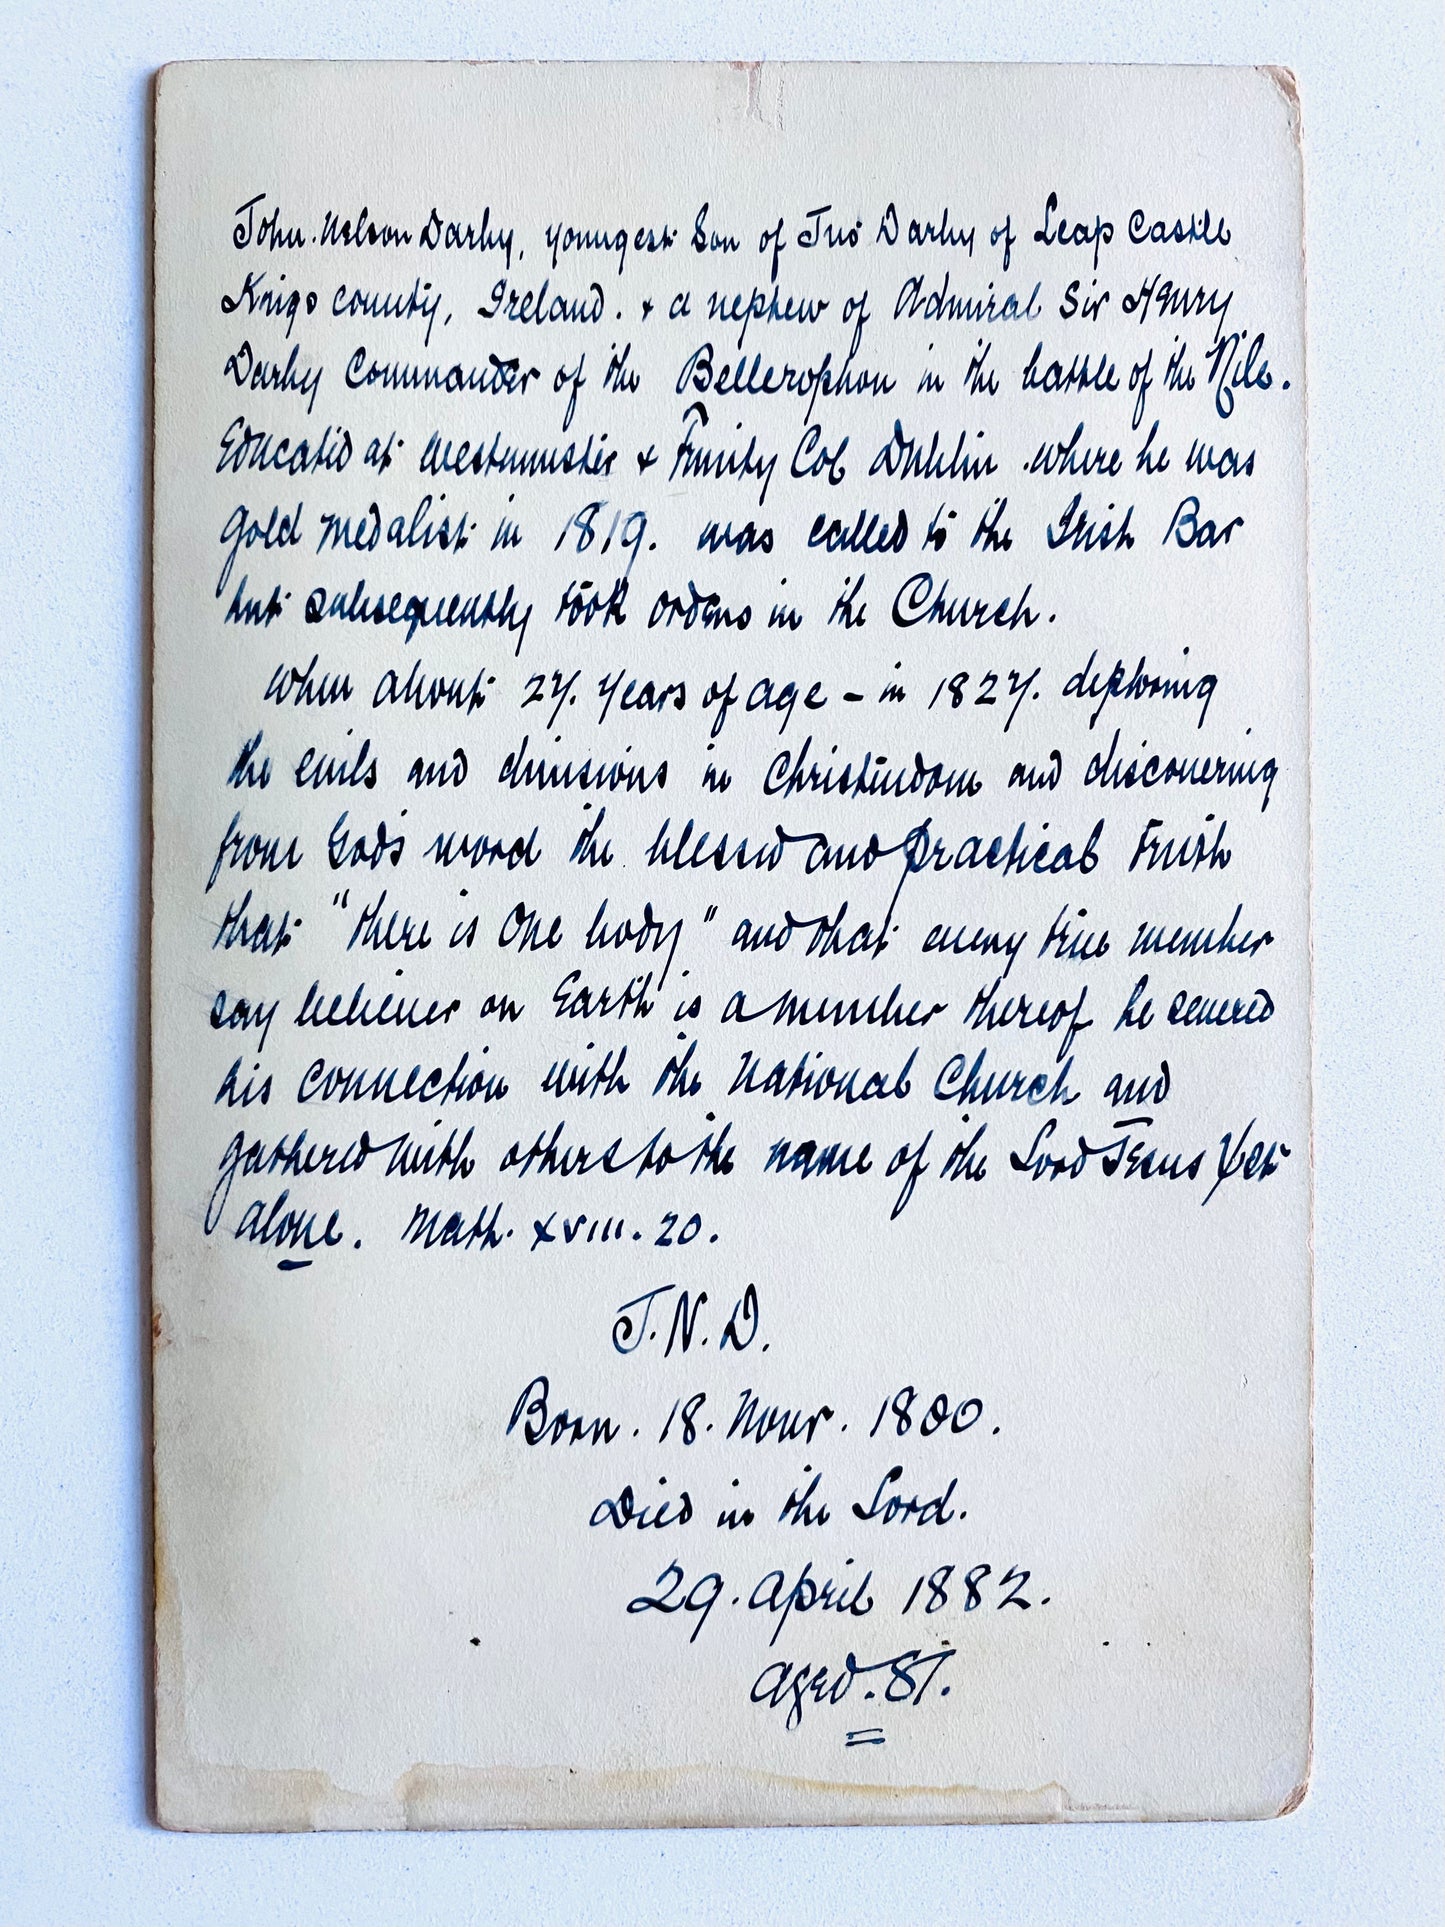 John Nelson Darby, youngest Son of Jno Darby of Leap Castle
Kings county, Ireland. & a nephew of Admiral Sir Henry
Darby Commander of the Bellerophon in the battle of the Nile.
Educated at Westminster & Trinity Col Dublin where he was
gold medalist in 1819. was called to the Irish Bar
but subsequently took orders in the Church.
When about 27. years of age – in 1827. deploring
the evils and divisions in Christendom and discovering
from God's word the blessed and practical truth
that "there is One body" and that every true member
say believer on Earth is a member thereof he severed
his connection with the National Church and
gathered with others to the name of the Lord Jesus Xst
alone. Math. xviii. 20.
J.N.D.
Born. 18. Novr. 1800.
Died in the Lord.
29. April 1882.
aged. 81.